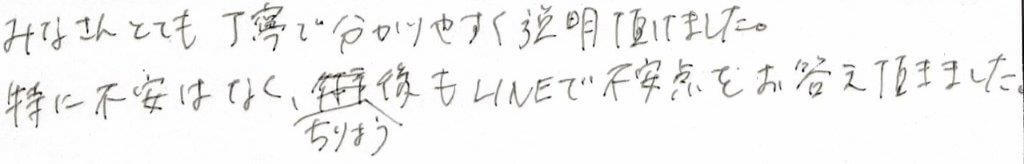 みなさんとても丁寧で分かりやすく説明頂けました。
特に不安はなく、後もLINEで不安点をお答え頂きました。
ちりょう